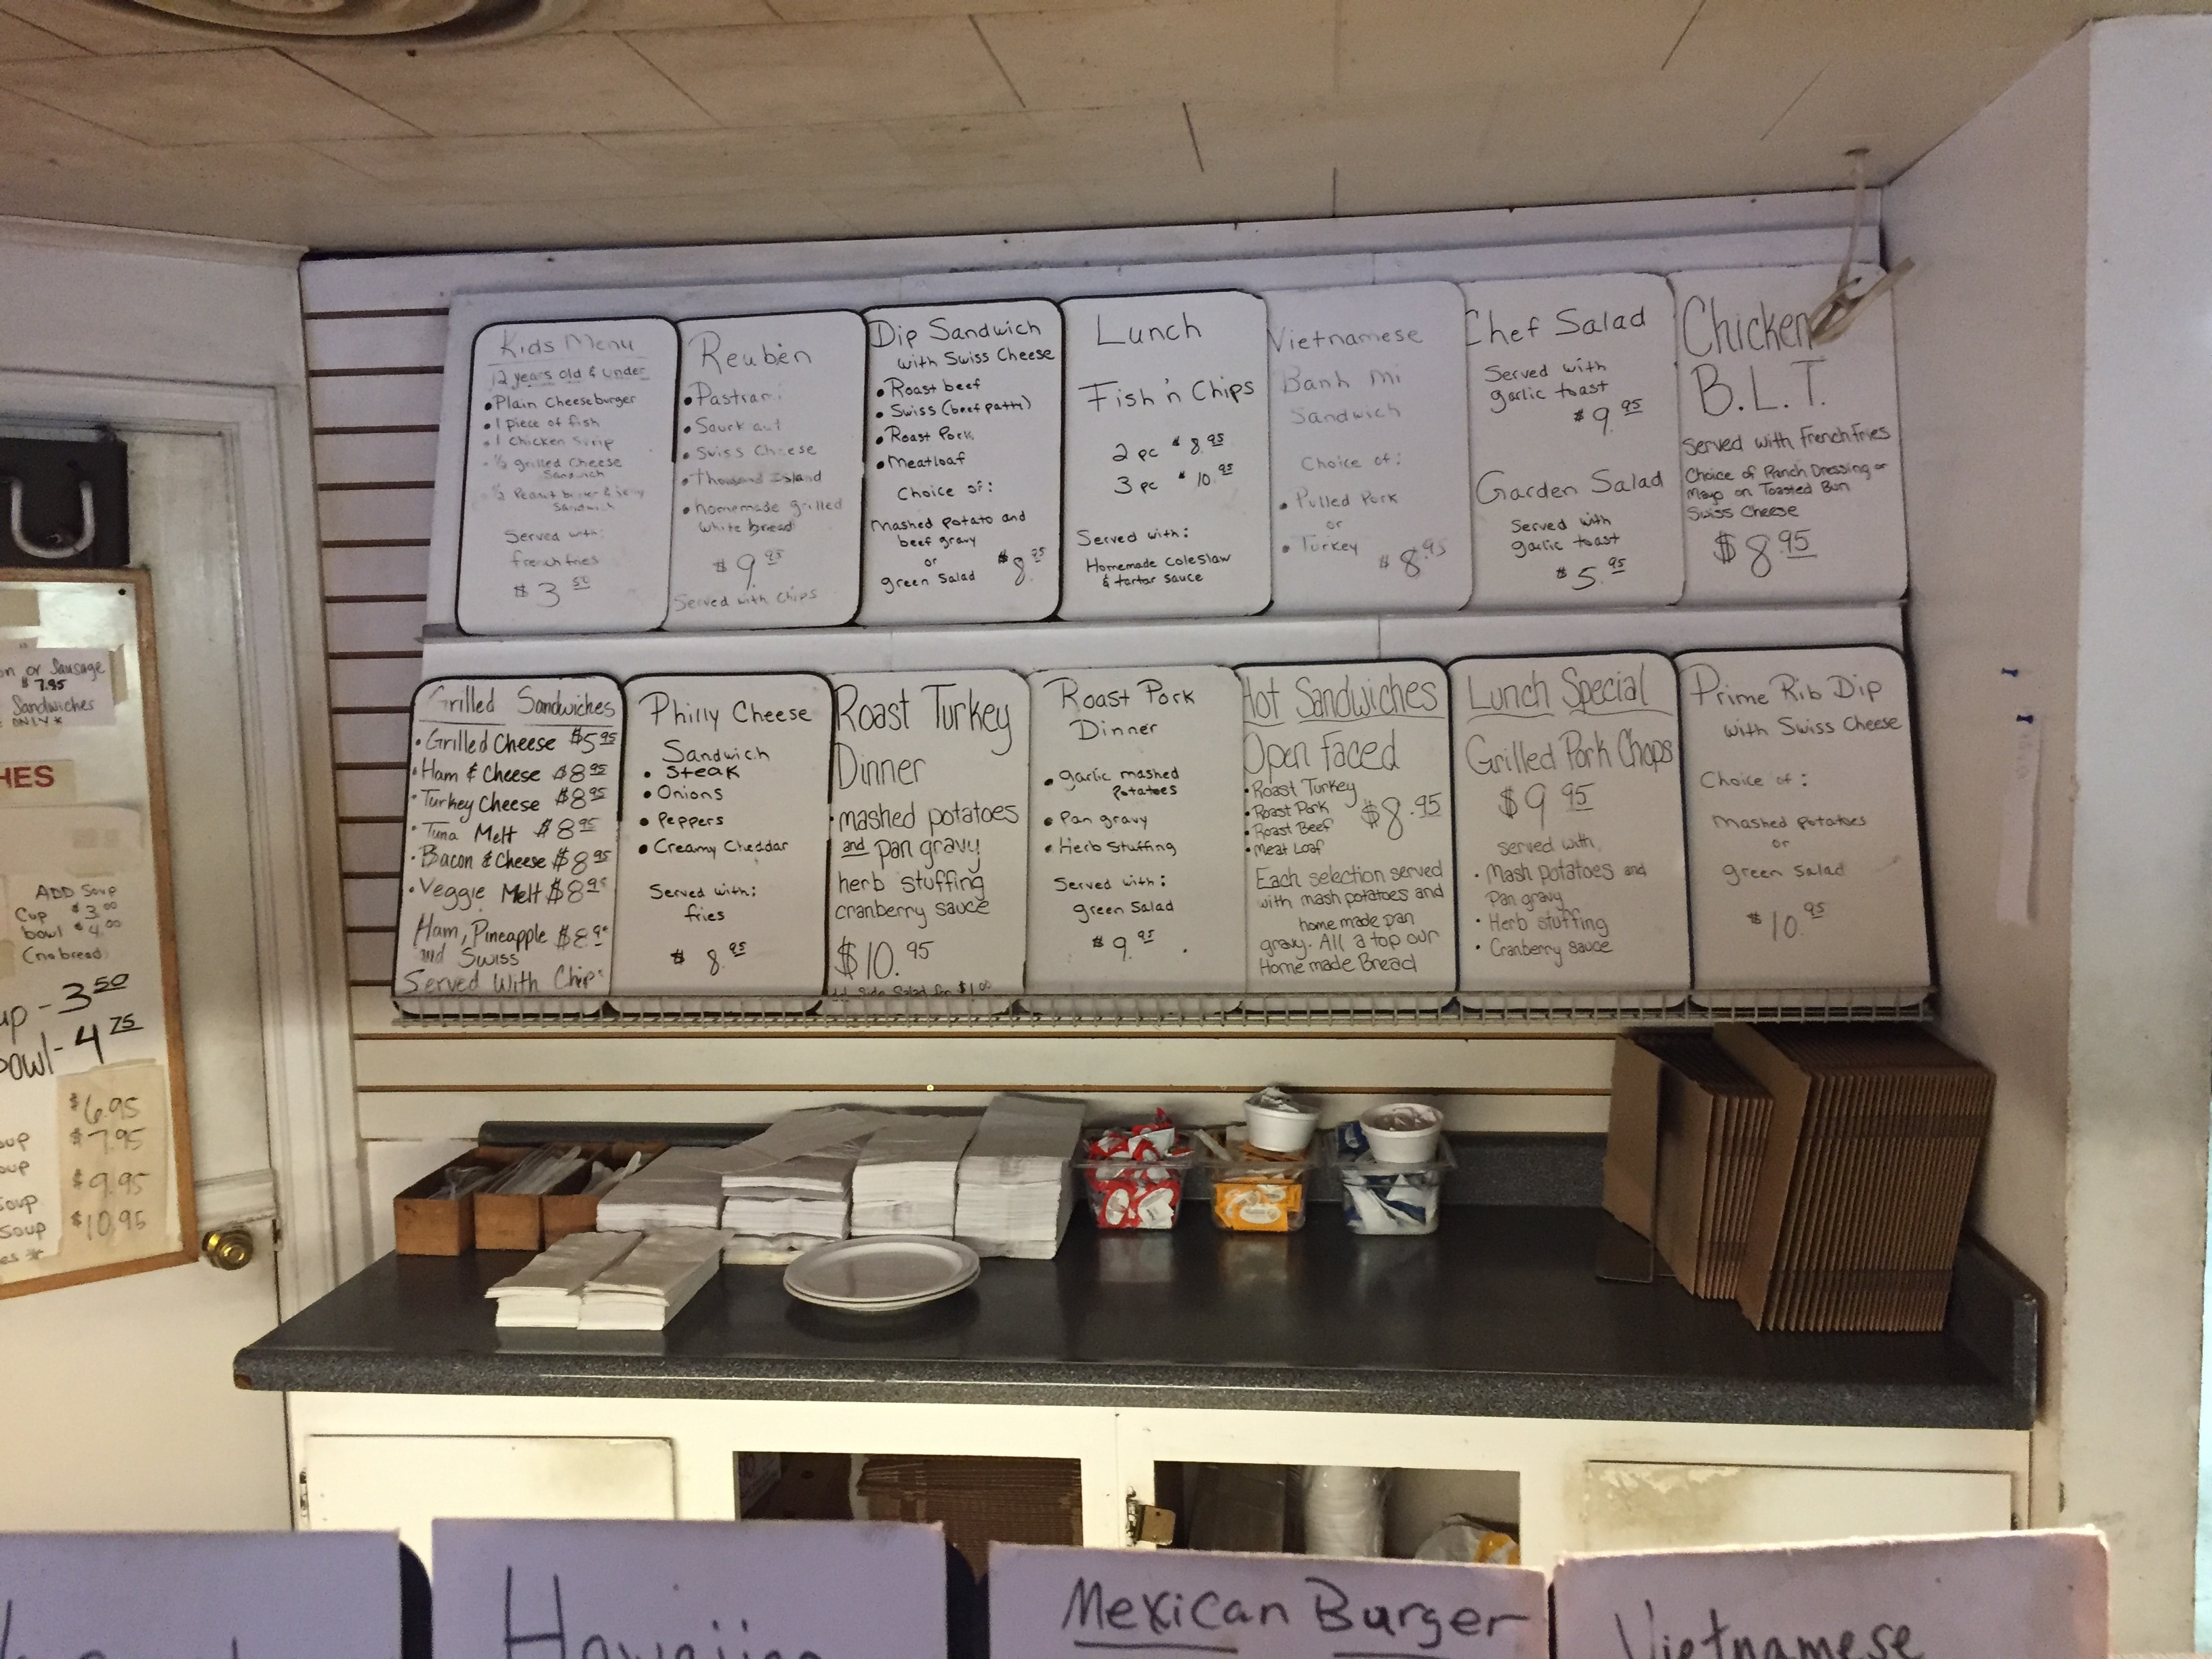 Kids Menu
12 years old & under
• Plain Cheeseburger
• 1 piece of fish
• 1 Chicken Strip
• ½ grilled Cheese
Sandwich
• ½ Peanut butter & jelly
Sandwich
Served with:
french fries
$3.50
Reuben
• Pastrami
• Sourkraut
• Swiss Cheese
• Thousand Island
• homemade grilled
white bread
$9.95
Served with Chips
Dip Sandwich
with Swiss Cheese
• Roast beef
• Swiss (beef patty)
• Roast Pork
• Meatloaf
Choice of:
Mashed Potato and
beef gravy
or
green Salad $8.95
Lunch
Fish 'n' Chips
2 pc $8.95
3 pc $10.95
Served with:
Homemade coleslaw
& tartar sauce
Vietnamese
Banh Mi
Sandwich
Choice of:
• Pulled Pork
or
• Turkey $8.95
Chef Salad
Served with
garlic toast
$9.95
Garden Salad
Served with
garlic toast
$5.95
Chicken
B.L.T.
Served with French Fries
Choice of Ranch Dressing or
Mayo on Toasted Bun
Swiss Cheese
$8.95
Grilled Sandwiches
• Grilled Cheese $5.95
• Ham & Cheese $8.95
• Turkey Cheese $8.95
• Tuna Melt $8.95
• Bacon & Cheese $8.95
• Veggie Melt $8.95
Ham, Pineapple $8.95
and Swiss
Served With Chips
Philly Cheese
Sandwich
• Steak
• Onions
• Peppers
• Creamy Cheddar
Served with:
fries
$8.95
Roast Turkey
Dinner
• mashed potatoes
and pan gravy
herb stuffing
cranberry sauce
$10.95
Side Salad for $1.00
Roast Pork
Dinner
• garlic mashed
potatoes
• Pan gravy
• Herb Stuffing
Served with:
green Salad
$9.95
Hot Sandwiches
Open Faced
• Roast Turkey
• Roast Pork
• Roast Beef
• Meat Loaf
$8.95
Each selection served
with mash potatoes and
home made pan
gravy. All a top our
Home made Bread
Lunch Special
Grilled Pork Chops
$9.95
served with
• Mash potatoes and
Pan gravy
• Herb stuffing
• Cranberry sauce
Prime Rib Dip
with Swiss Cheese
Choice of:
Mashed Potatoes
or
green Salad
$10.95
or Sausage
$7.95
Sandwiches
ONLY*
HES
ADD Soup
Cup $3.00
bowl $4.00
(no bread)
up - 3.50
bowl - 4.75
$6.95
oup $7.95
oup
Soup $9.95
Soup $10.95
es *
Hawaiian
Mexican Burger
Vietnamese